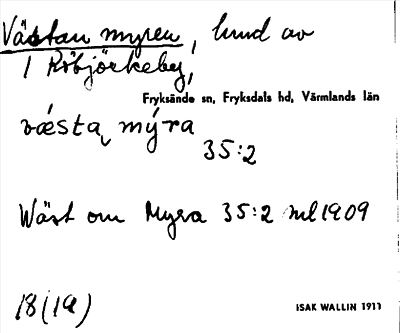 Västan myren, hmd av
1 Röbjörkeby,
Fryksände sn, Fryksdals hd, Värmlands län
væ̀sta mýra
35:2
Wäst om Myra 35:2 ml 1909
18(19)
ISAK WALLIN 1911